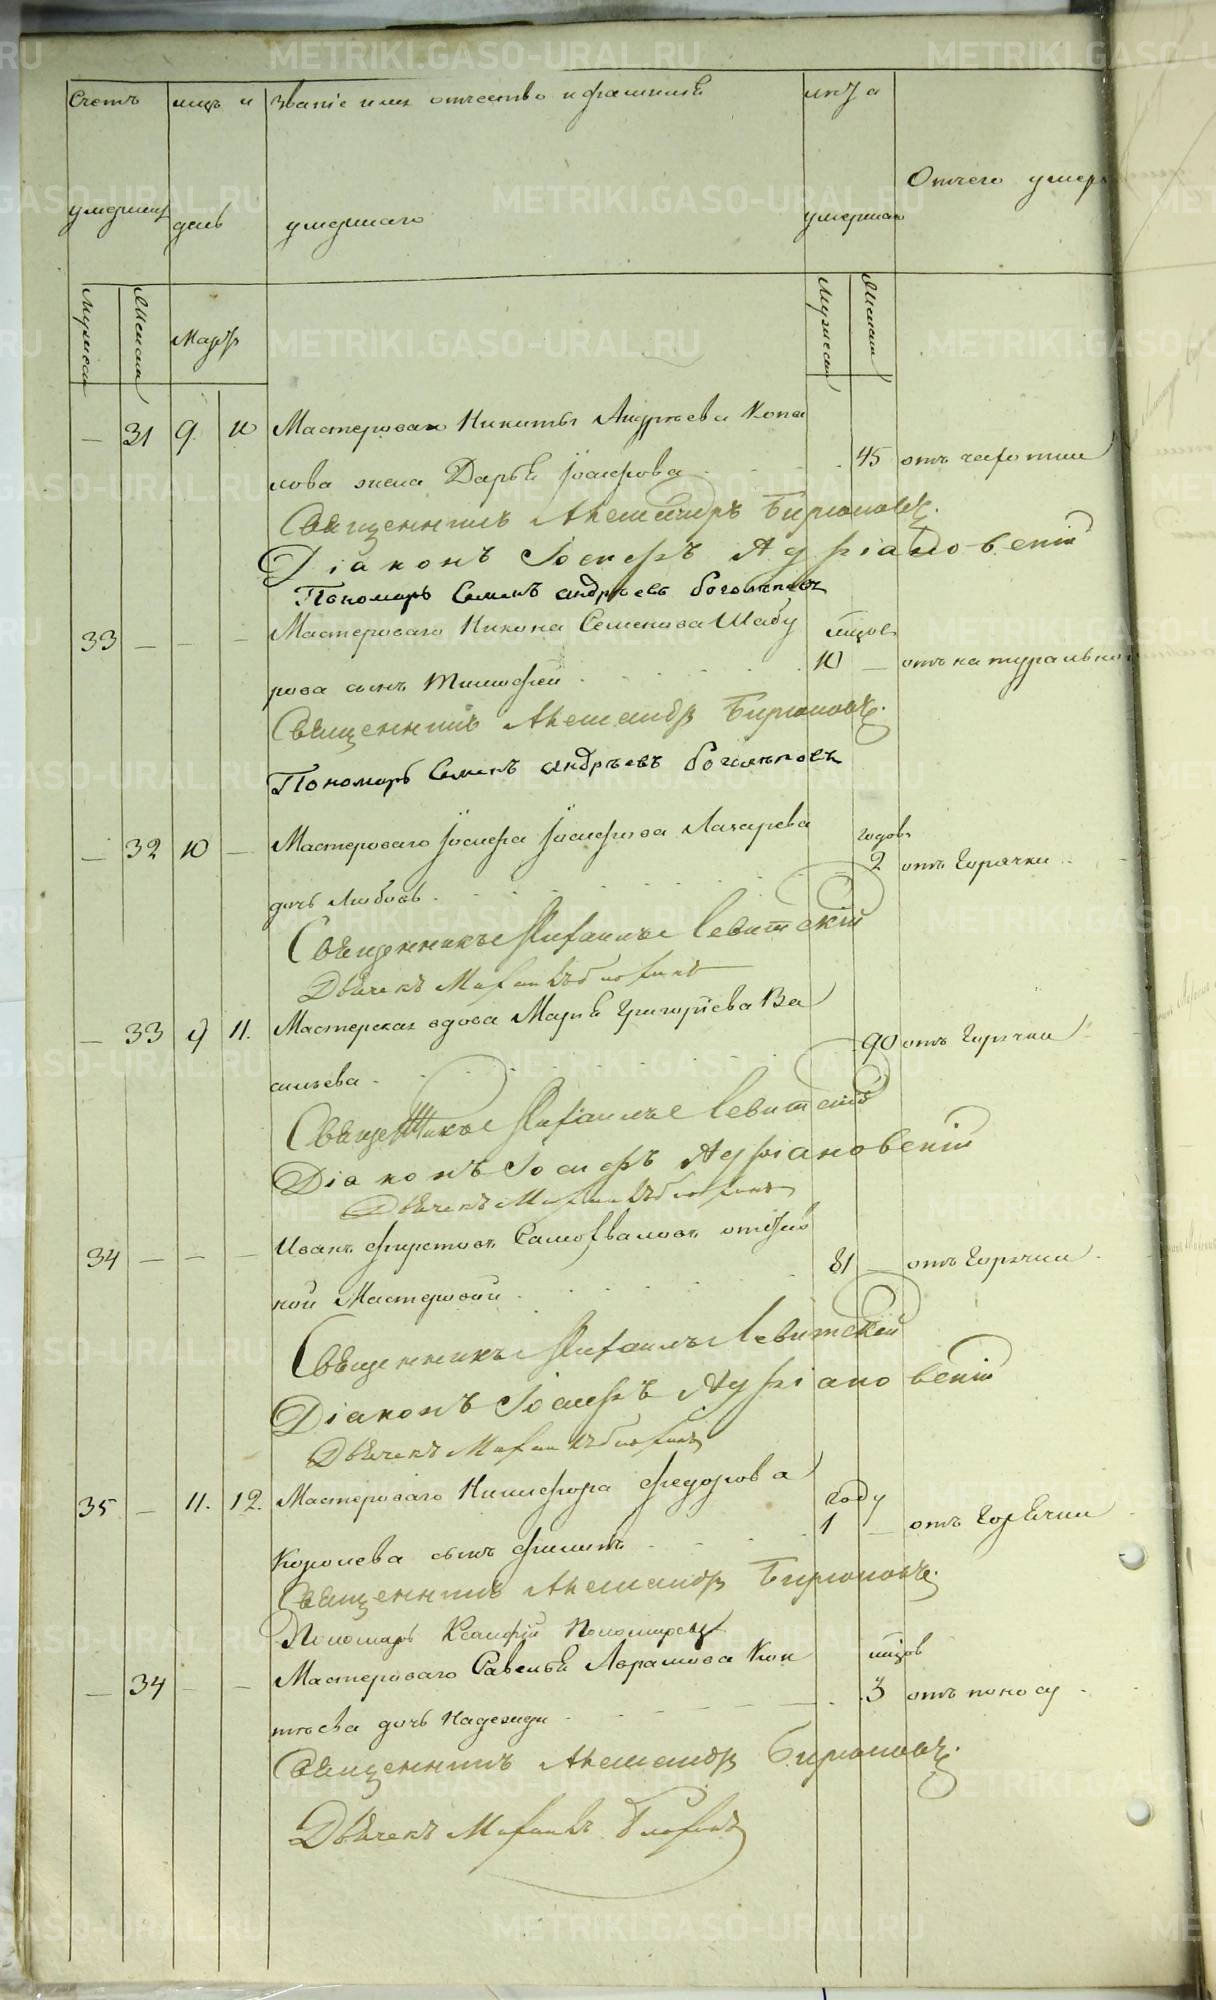 Счетъ мцъ и званіе имя отчество и фамилія лѣта
Отчего умеръ
умершихъ день умершаго умершаго
Мужеска Женска Мартъ Мужеска Женска
— 31 9 10 Мастероваго Никиты Андреева Копа
45 отъ чахотки
лова жена Дарья Іосифова
Священникъ Александръ Бирюковъ.
Діаконъ Іосифъ Адріановскій
Пономарь Семенъ Андреевъ Богомловъ
33 — — — Мастероваго Никона Семенова Шабу мцов
10 — отъ натуральной
рова сынъ Тимофей
Священникъ Александръ Бирюковъ.
Пономарь Семенъ Андреевъ
— 32 10 — Мастероваго Іосифа Іосифова Лазарева годовъ
2 отъ Горячки
дочь Любовь
Священникъ Михаилъ Левитскій
Дьячекъ
— 33 9 11. Мастерская вдова Марья Григорьева Ва
90 отъ Горячки
сильева
Священникъ Михаилъ Левитскій
Діаконъ Іосифъ Адріановскій
Дьячекъ
34 — — — Иванъ Фирстовъ Самохваловъ отстав
81 — отъ Горячки
ной Мастеровой
Священникъ Михаилъ Левитскій
Діаконъ Іосифъ Адріановскій
Дьячекъ
35 — 11. 12. Мастероваго Никифора Федорова году
1 — отъ Горячки
Королева сынъ Филипъ
Священникъ Александръ Бирюковъ.
Пономарь Ксенофонтъ Пономаревъ
— 34 — — Мастероваго Савелья Абрамова Коп мцов
3 отъ поносу
тѣева дочь Надежда
Священникъ Александръ Бирюковъ.
Дьячекъ
METRIKI.GASO-URAL.RU